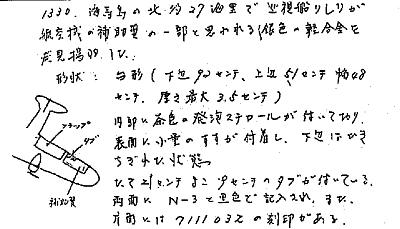 1330. 海青島の北約27海里で巡視船りしりが
航空機の補助翼の一部と思われる銀色の軽合金を
発見揚収した。
形状: 台形(下辺92センチ、上辺51センチ 幅48
センチ、厚さ最大3.5センチ)
内部に茶色の発泡スチロールが付いており、
表面に少量のすすが付着し、下辺はひき
ちぎれた状態
ヒて21センチよこ9センチのタブが付いている。
両面に N-3と黒色で記入され、また、
片面には 7111032 の刻印がある。
フラップ
タブ
補助翼